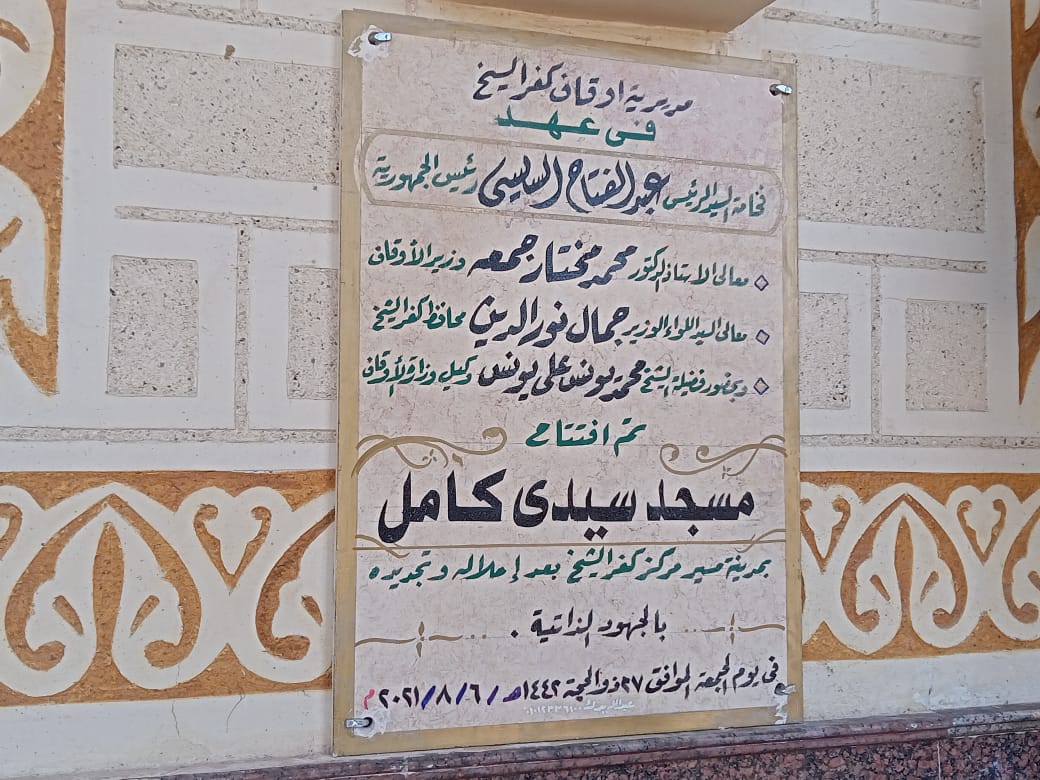 مديرية اوقاف كفر الشيخ
فى عهد
فخامة السيد الرئيس عبد الفتاح السيسى رئيس الجمهورية
معالى الاستاذ الدكتور محمد مختار جمعه وزير الأوقاف
معالى السيد اللواء الوزير جمال نور الدين محافظ كفر الشيخ
وبحضور فضيلة الشيخ محمد يونس على يونس وكيل وزارة الأوقاف
تم افتتاح
مسجد سيدى كامل
بمدينة مسير مركز كفر الشيخ بعد إحلاله وتجديده
بالجهود الذاتية .
فى يوم الجمعة الموافق ٢٧ ذو الحجة ١٤٤٢هـ / ٦ / ٨ / ٢٠٢١م